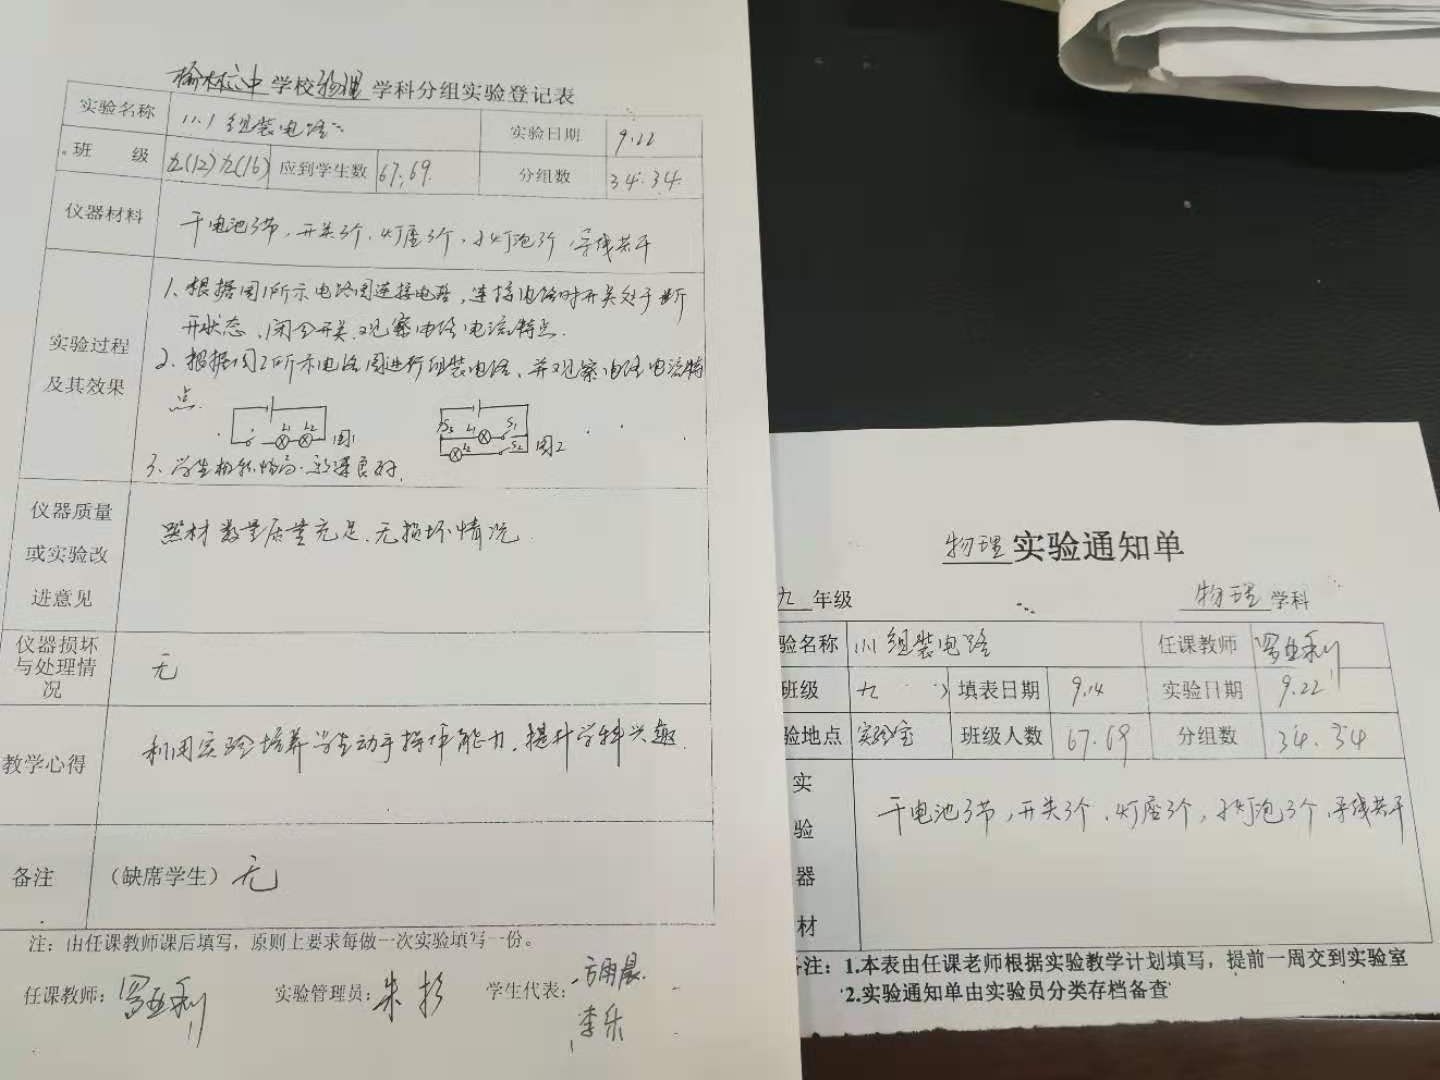 榆林六中学校物理学科分组实验登记表
实验名称 11.1 组装电路 实验日期 9.22
班 级 九(12)九(16) 应到学生数 67.69 分组数 34.34.
仪器材料 干电池3节,开关3个,灯座3个,小灯泡3个,导线若干
实验过程及其效果
1、根据图1所示电路图连接电路,连接电路时开关处于断
开状态、闭合开关、观察电路电流特点.
2、根据图2所示电路图进行组装电路、并观察电路电流特
点.
L1 L2 图1
S3 L1 S1 L2 S2 图2
3、学生积极性高.效果良好.
仪器质量或实验改进意见 器材数量质量充足、无损坏情况.
仪器损坏与处理情况 无
教学心得 利用实验培养学生动手操作能力,提升学科兴趣.
备注 (缺席学生) 无
注:由任课教师课后填写,原则上要求每做一次实验填写一份。
任课教师:罗亚利 实验管理员:朱杉 学生代表:方雨晨
李乐
物理实验通知单
九 年级 物理 学科
验名称 11.1 组装电路 任课教师 罗亚利
班级 九 填表日期 9.14 实验日期 9.22
验地点 实验室 班级人数 67.69 分组数 34.34
实
验
器
材
干电池3节,开关3个,灯座3个,小灯泡3个,导线若干
备注:1.本表由任课老师根据实验教学计划填写,提前一周交到实验室
2.实验通知单由实验员分类存档备查